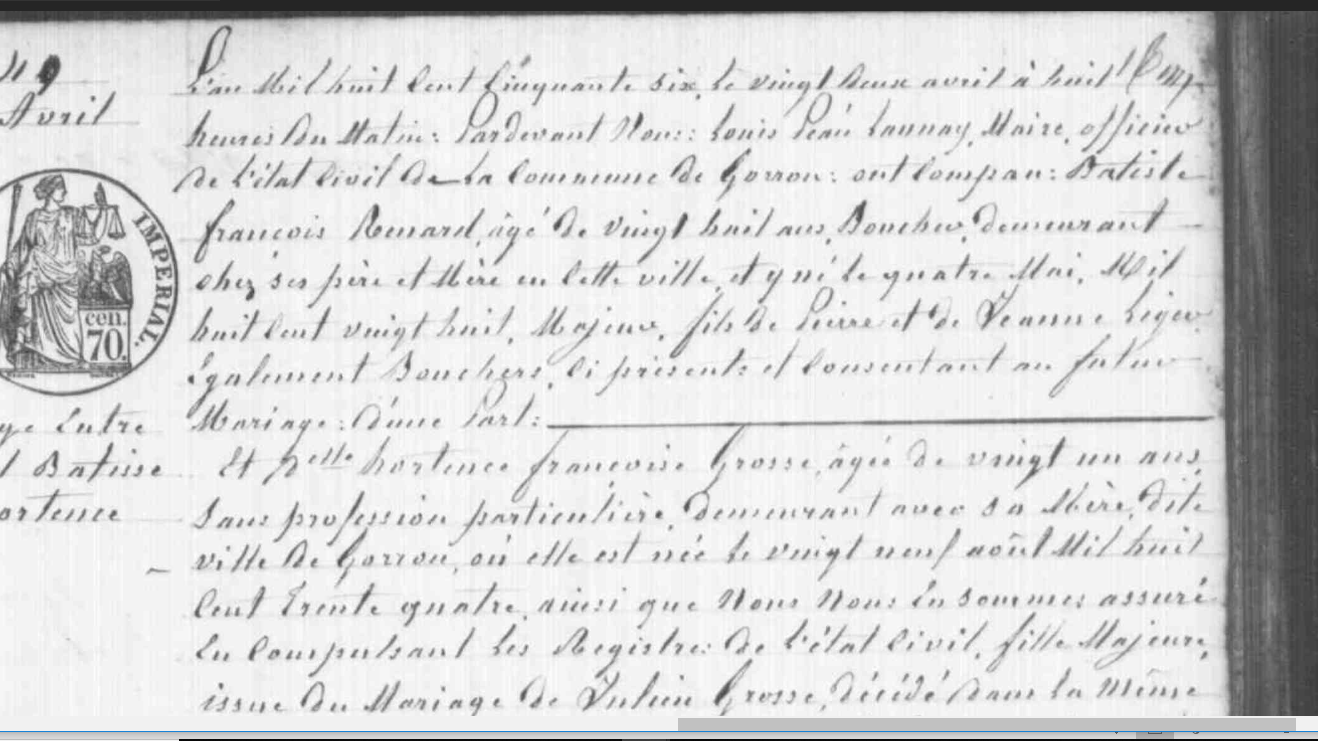 49
Avril
IMPERIAL.
cen.
70.
ge Entre
t Batisse
ortence
L'an Mil huit Cent Cinquante Six, Le vingt deux avril à huit
heures du Matin: Pardevant Nous: Louis Launay, Maire, officier
de L'état Civil de La Commune de Gorron: ont Compau: Batiste
françois Renard, âgé de vingt huit ans, Boucher, demeurant
chez ses père et Mère en Cette ville, et y né le quatre Mai, Mil
huit Cent vingt huit, Majeur, fils de Pierre et de Jeanne Liger
Egalement Bouchers, Ci présents et Consentant au futur
Mariage: d'une Part:
Et Delle hortence françoise Grosse, âgée de vingt un ans,
Sans profession particulière, demeurant avec sa Mère, dite
ville de Gorron, où elle est née Le vingt neuf août Mil huit
Cent Trente quatre, ainsi que Nous Nous En Sommes assuré
En Compulsant Les Registres de L'état Civil, fille Majeure,
issue du Mariage de Julien Grosse, décédé dans La Même